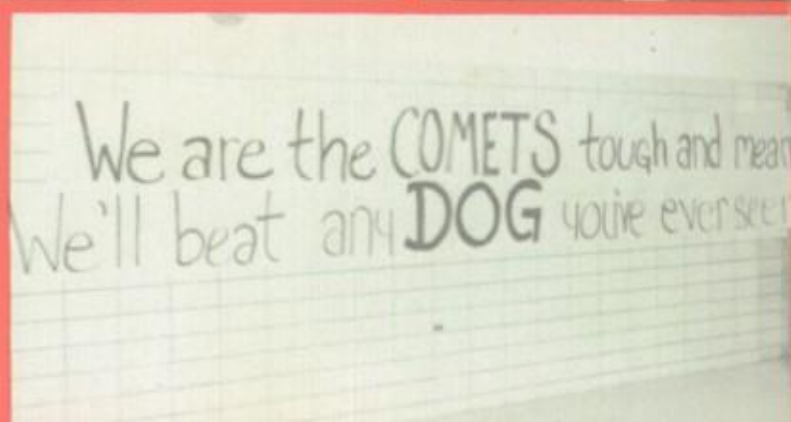 We are the COMETS tough and mean
We'll beat any DOG you've ever seen